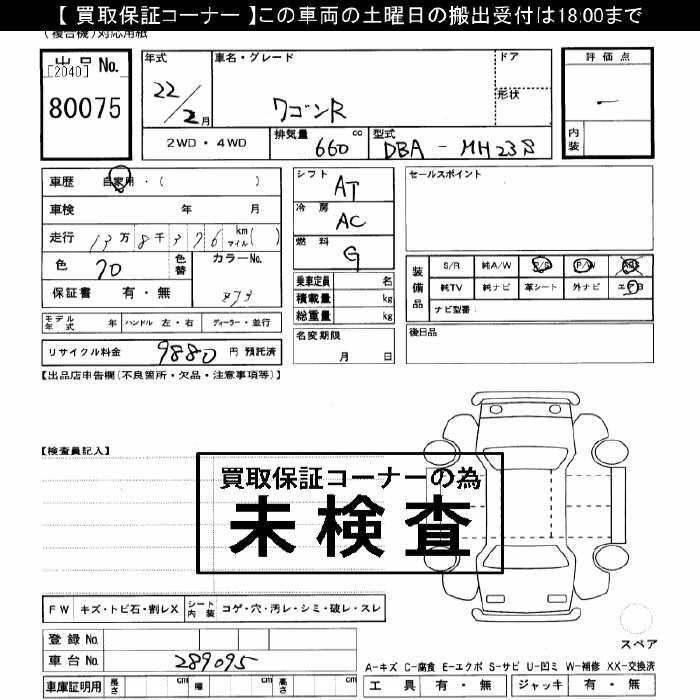 【 買取保証コーナー 】この車両の土曜日の搬出受付は18:00まで
(複合機)対応用紙
出品 No.
[2040]
80075
年式
22/2月
車名・グレード
ワゴンR
ドア
形状
評価点
ー
内装
2WD・4WD
排気量 660 cc
型式 DBA - MH23S
車歴 自家用・( )
車検 年 月
走行 13万8千376 km マイル( )
色 70
色替
カラーNo. 873
保証書 有・無
モデル年式 年 ハンドル 左・右 ディーラー・並行
リサイクル料金 9880 円 預託済
シフト AT
冷房 AC
燃料 G
乗車定員 名
積載量 kg
総重量 kg
名変期限
月 日
セールスポイント
装備品
S/R 純A/W P/S P/W ABS
純TV 純ナビ 革シート 外ナビ エアB
ナビ型番:
後日品
【出品店申告欄(不良箇所・欠品・注意事項等)】
【検査員記入】
買取保証コーナーの為
未検査
FW キズ・トビ石・割レX シート内装 コゲ・穴・汚レ・シミ・破レ・スレ
登録 No.
車台 No. 289095
車庫証明用 長さ cm 幅 cm 高さ cm
スペア
A-キズ C-腐食 E-エクボ S-サビ U-凹ミ W-補修 XX-交換済
工具 有・無 ジャッキ 有・無